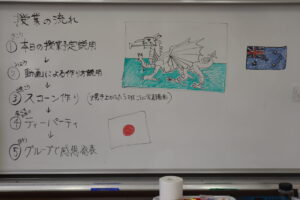 授業の流れ
① 本日の授業予定説明
② 動画による作り方説明
③ スコーン作り
④ ティーパーティ
⑤ グループで感想発表